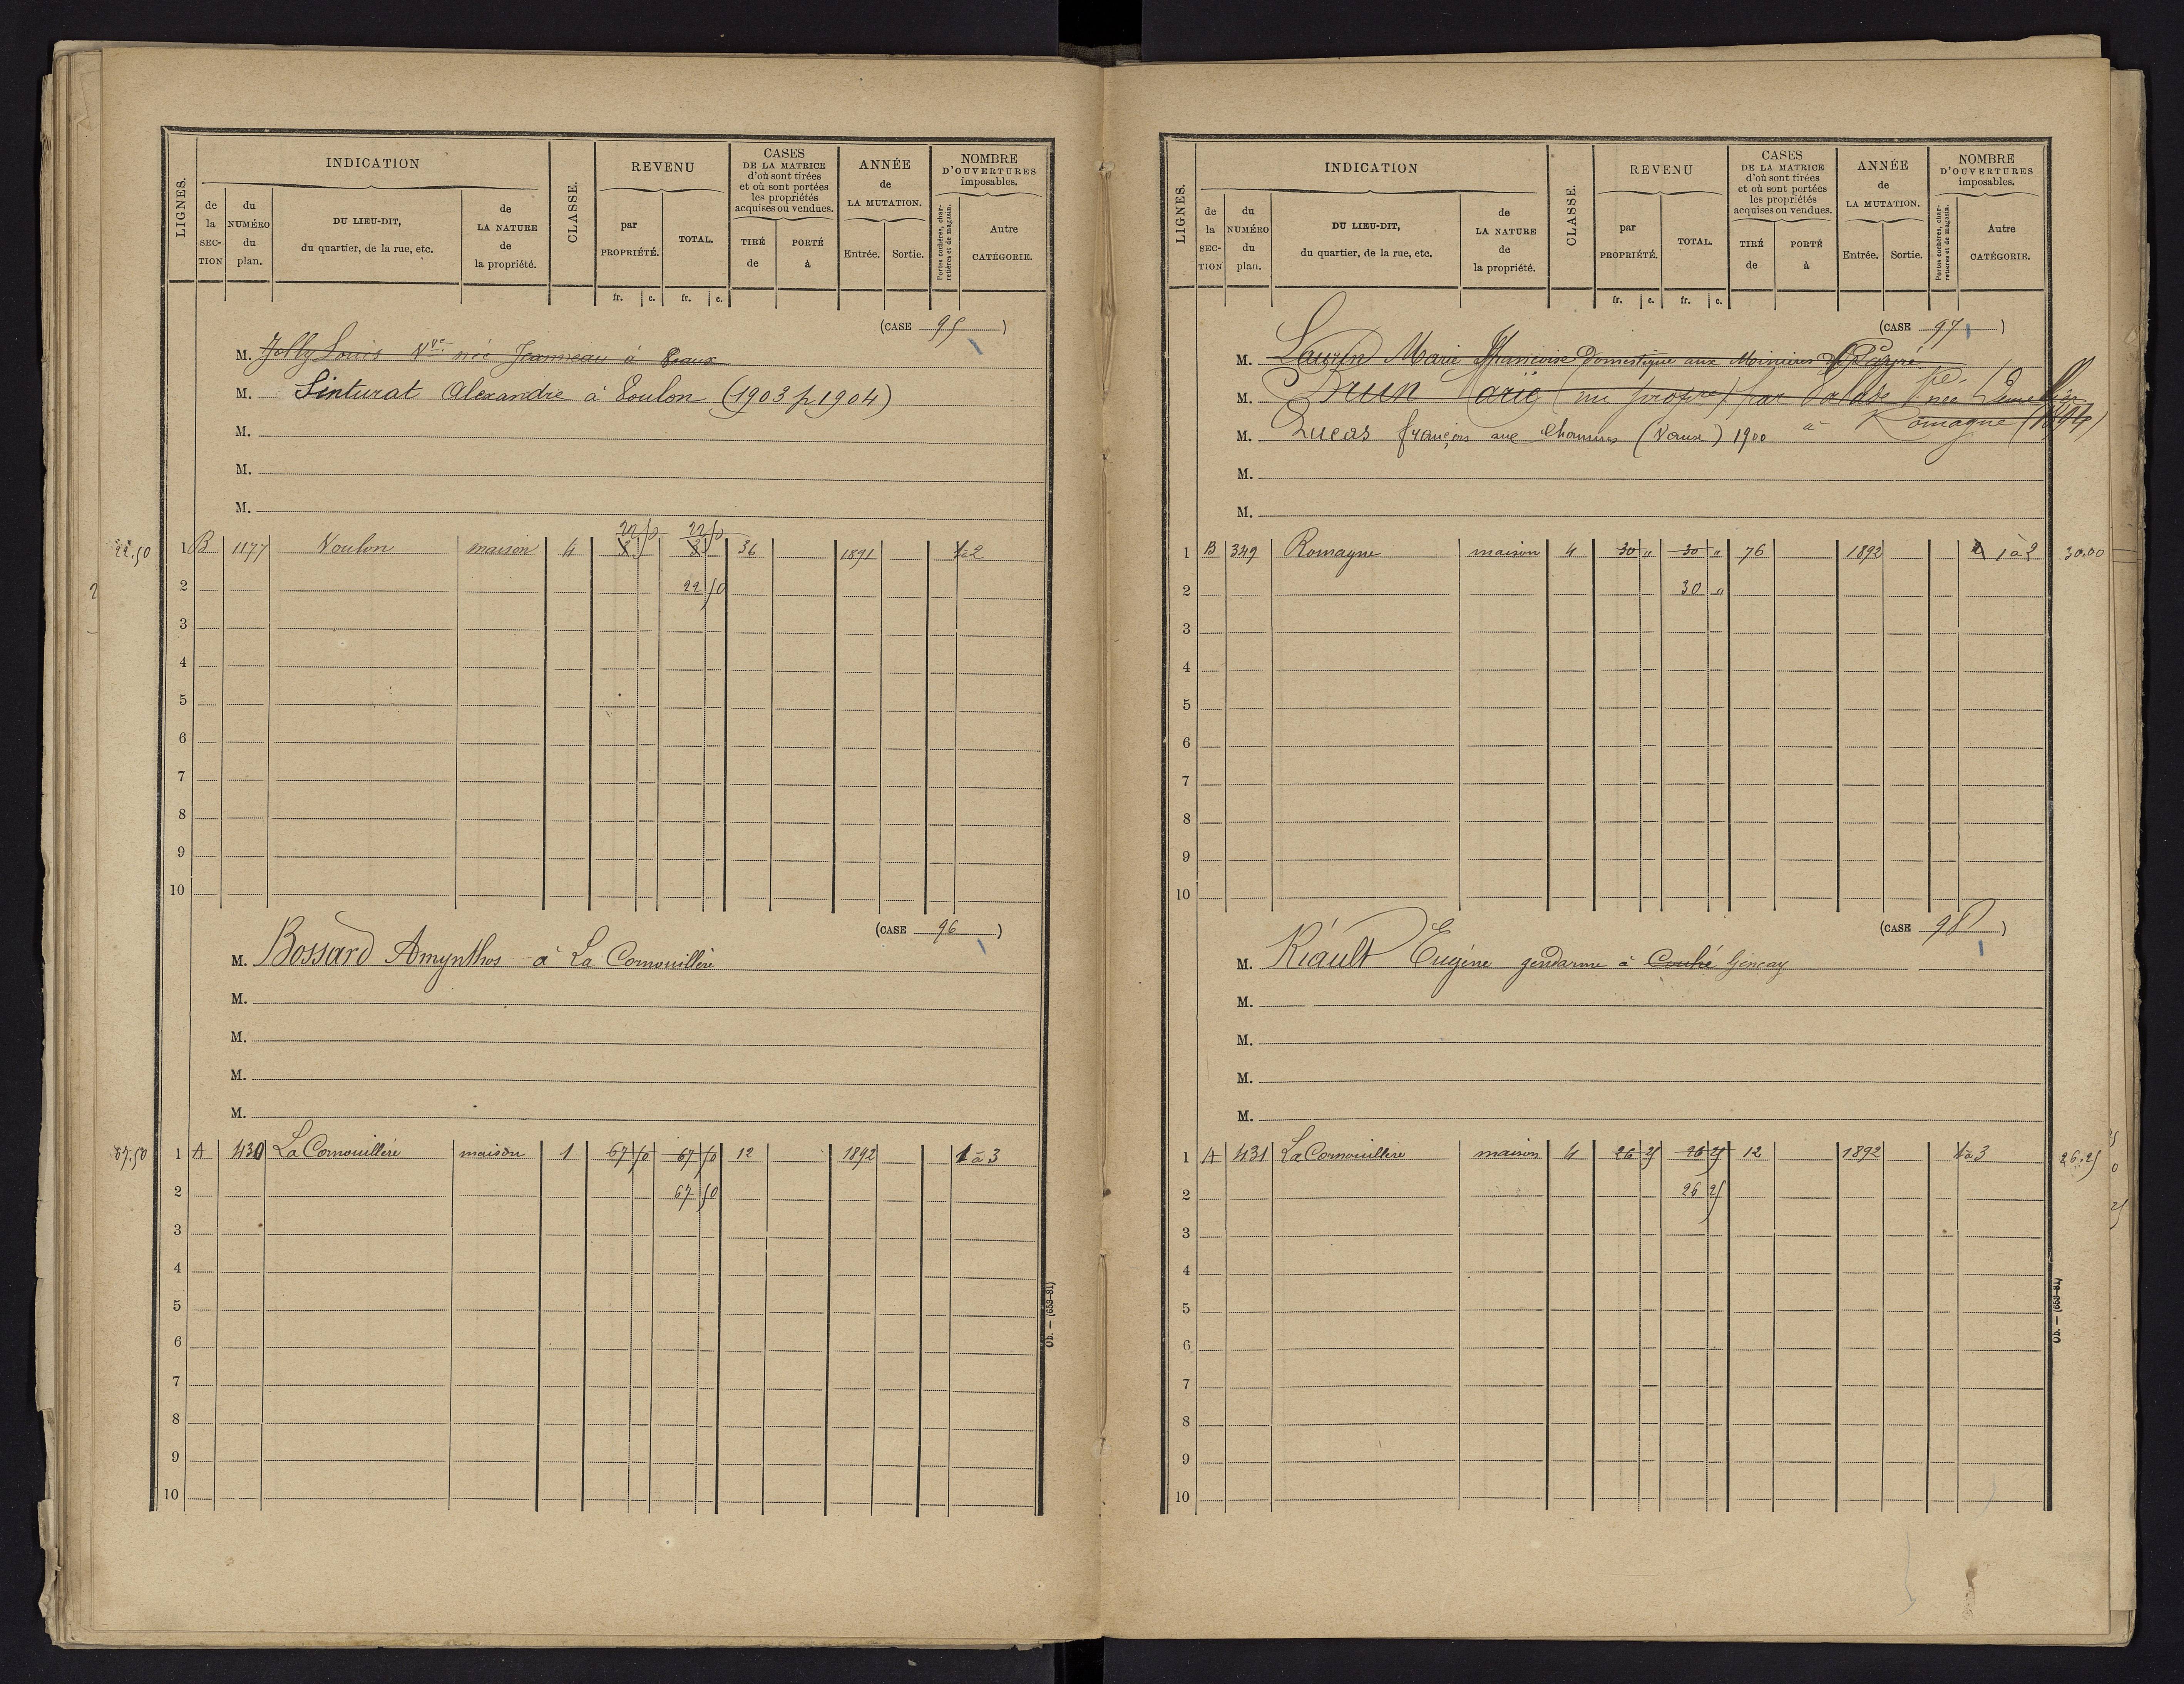 LIGNES. INDICATION CLASSE. REVENU CASES DE LA MATRICE d'où sont tirées et où sont portées les propriétés acquises ou vendues. ANNÉE de LA MUTATION. NOMBRE D'OUVERTURES imposables.
de la SECTION du NUMÉRO du plan. DU LIEU-DIT, du quartier, de la rue, etc. de LA NATURE de la propriété. par PROPRIÉTÉ. TOTAL. TIRÉ de PORTÉ à Entrée. Sortie. Portes cochères, charretières et de magasin. Autre CATÉGORIE.
fr. c. fr. c.
(CASE 95)
M. Jolly Louis Vve née Jeanneau à Vaux
M. Sinturat Alexandre à Voulon (1903 p 1904)
M.
M.
M.
22 50 22 50
22.50 1 B 1177 Voulon maison 4 36 1891 1 à 2
2 22 50
3
4
5
6
7
8
9
10
(CASE 96)
M. Bossard Amynthos à La Cornouillère
M.
M.
M.
M.
67.50 1 A 430 La Cornouillère maison 1 67 50 67 50 12 1892 1 à 3
2 67 50
3
4
5
6
7
8
9
10
Ob. — (653-81)
LIGNES. INDICATION CLASSE. REVENU CASES DE LA MATRICE d'où sont tirées et où sont portées les propriétés acquises ou vendues. ANNÉE de LA MUTATION. NOMBRE D'OUVERTURES imposables.
de la SECTION du NUMÉRO du plan. DU LIEU-DIT, du quartier, de la rue, etc. de LA NATURE de la propriété. par PROPRIÉTÉ. TOTAL. TIRÉ de PORTÉ à Entrée. Sortie. Portes cochères, charretières et de magasin. Autre CATÉGORIE.
fr. c. fr. c.
(CASE 97)
M. Laurin Marie Françoise Domestique aux Minières de Payré
M. Brun Marie (nu propre) par née
M. Lucas françois aux (Vaux) 1900 à Romagne (1894)
M.
M.
1 B 349 Romagne maison 4 30 " 30 " 76 1892 1 à 2 30.00
2 30 "
3
4
5
6
7
8
9
10
(CASE 98)
M. Riault Eugène gendarme à Couhé Gençay
M.
M.
M.
M.
1 A 431 La Cornouillère maison 4 26 25 26 25 12 1892 1 à 3 26.25
2 26 25
3
4
5
6
7
8
9
10
Ob. — (653-81)